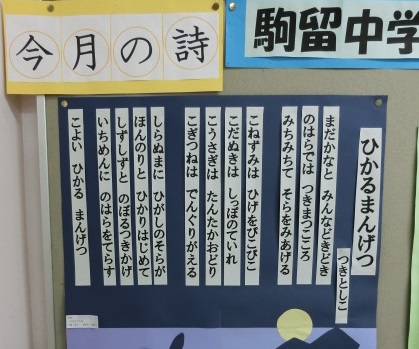 今月の詩
駒留中学
ひかるまんげつ
つきとしこ
まだかなと みんなどきどき
のはらでは つきまつこころ
みちみちて そらをみあげる
こねずみは ひげをぴこぴこ
こだぬきは しっぽのていれ
こうさぎは たんたかおどり
こぎつねは でんぐりがえる
しらぬまに ひがしのそらが
ほんのりと ひかりはじめて
しずしずと のぼるつきかげ
いちめんに のはらをてらす
こよい ひかる まんげつ